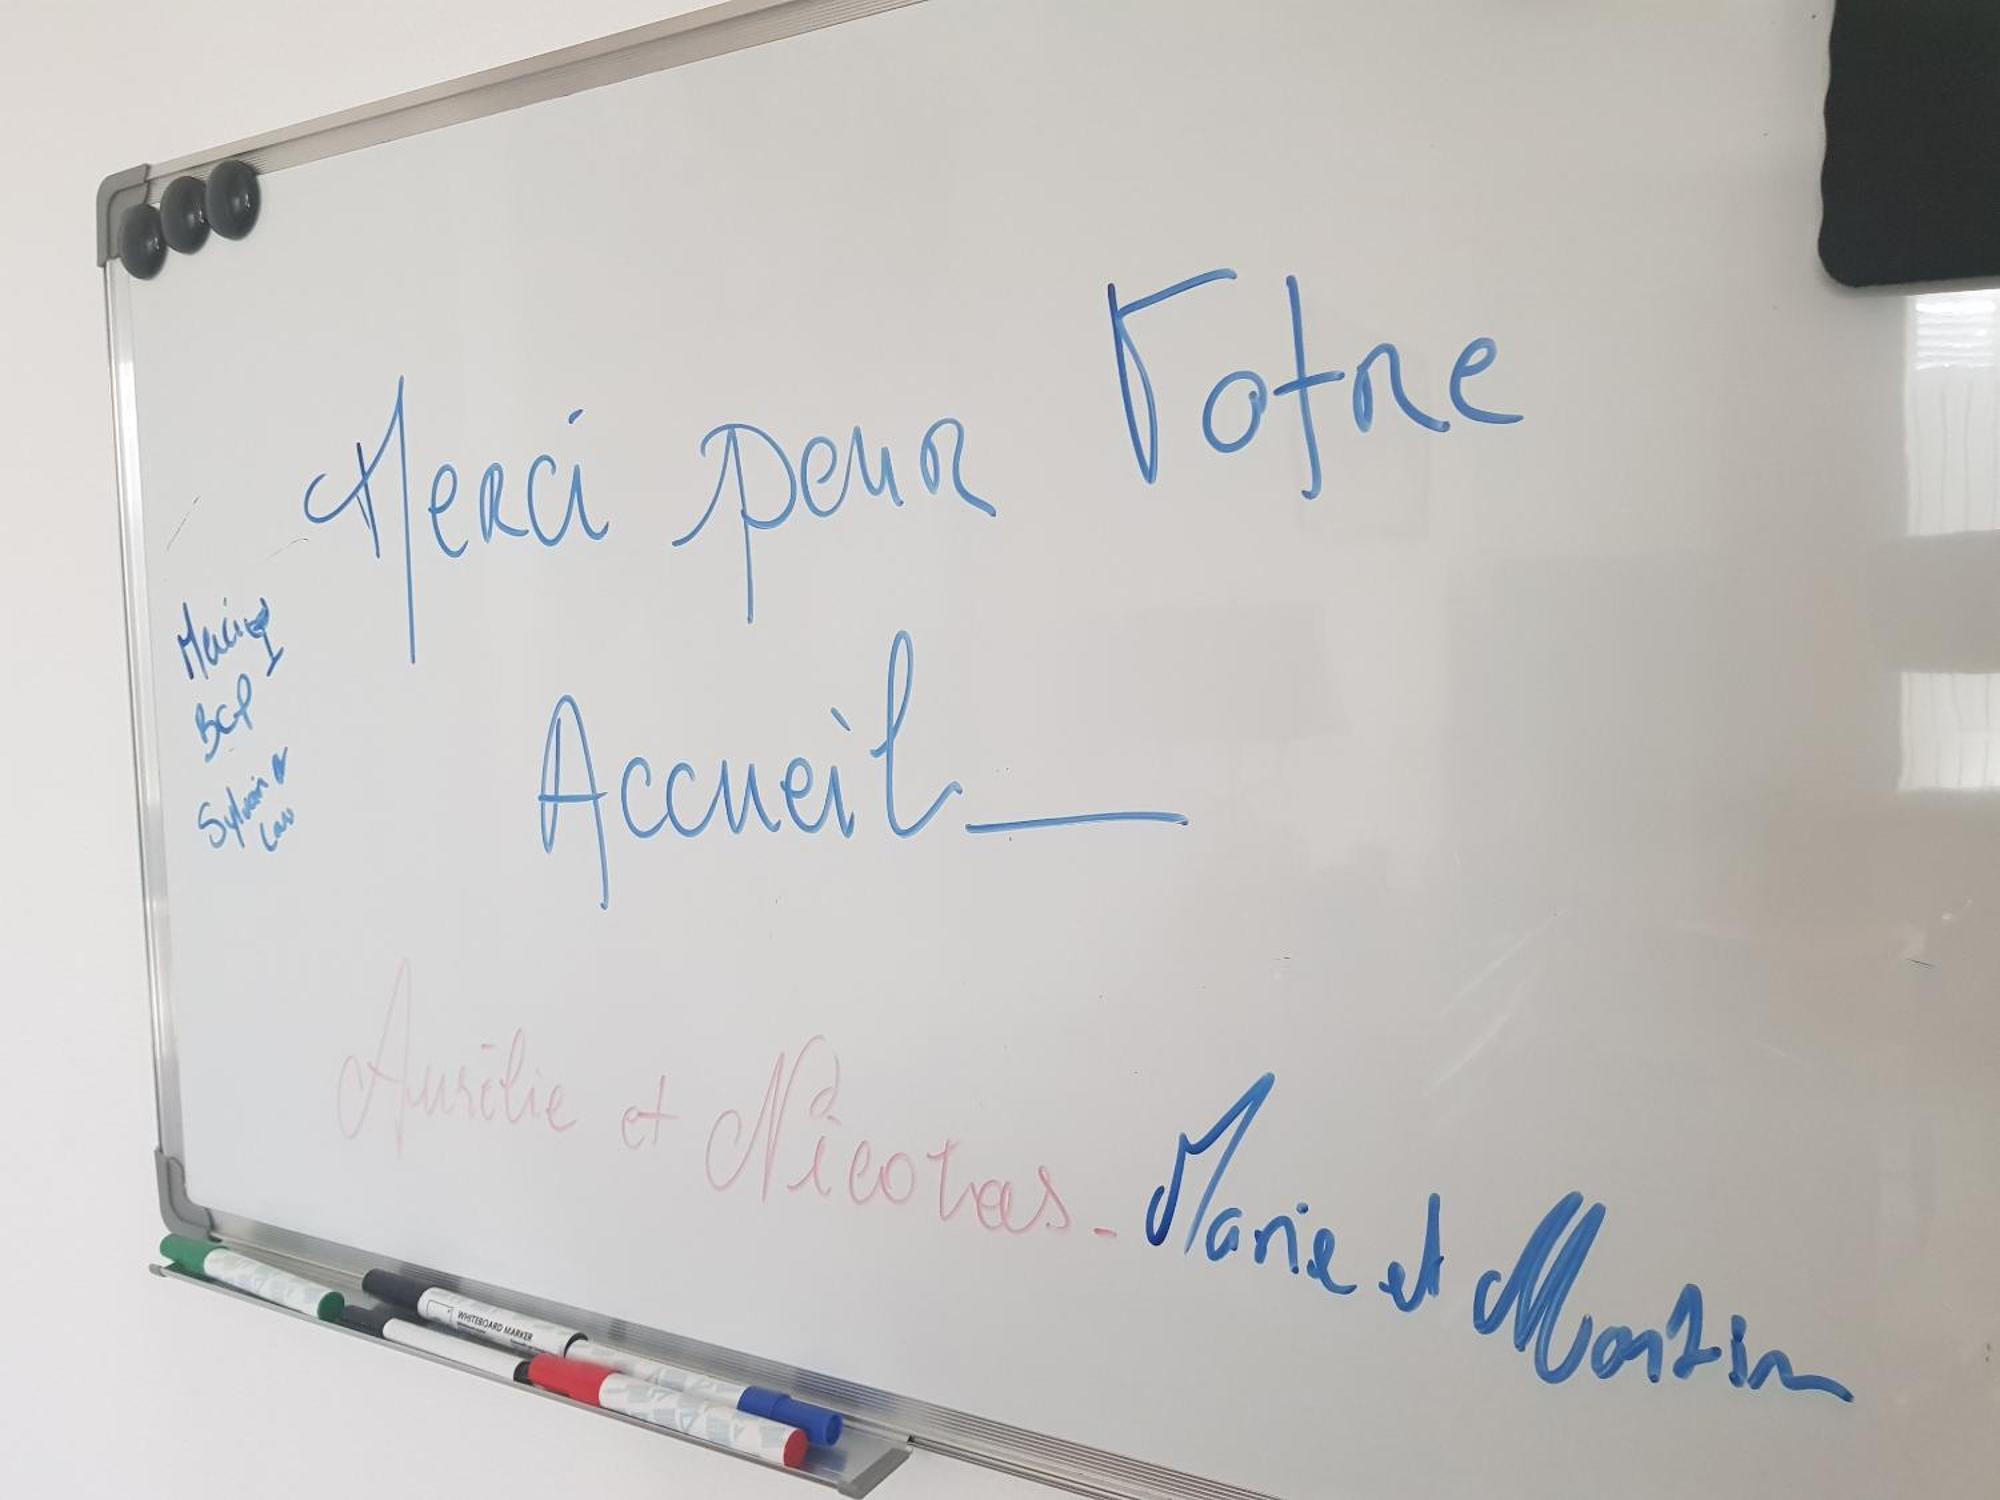 Merci pour Votre
Accueil
Aurélie et Nicolas - Marie et Martin
BCP
Sylvain &
WHITEBOARD MARKER